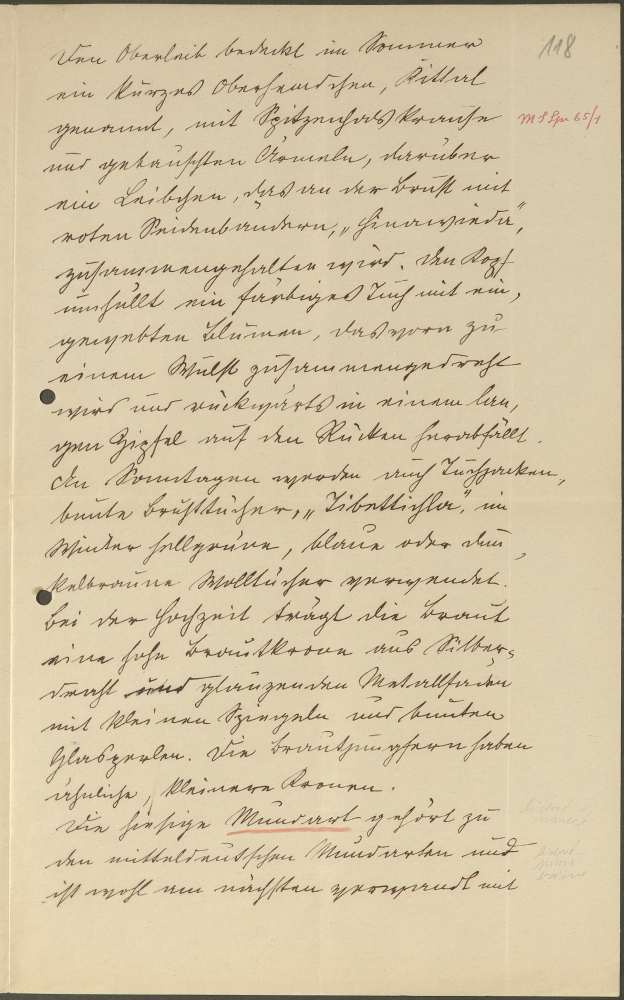 118
Den Oberleib bedeckt im Sommer
ein kurzes Oberhemdchen, Kittal
genannt, mit Spitzenhalskrause
M S Spr 65/1
und gebauschten Ärmeln, darüber
ein Leibchen, das an der Brust mit
roten Seidenbändern, „hinawieda",
zusammengehalten wird. Den Kopf
umhüllt ein färbiges Tuch mit ein,
gewebten Blumen, das vorn zu
einem Wulst zusammengedreht
wird und rückwärts in einem lan,
gen Zipfel auf den Rücken herabfällt.
An Sonntagen werden auch Tuchjacken,
bunte Brusttücher, „Tibettichla", im
Winter hellgrüne, blaue oder dun,
kelbraune Wolltücher verwendet.
Bei der Hochzeit trägt die Braut
eine hohe Brautkrone aus Silber-
draht und glänzenden Metallfäden
mit kleinen Spiegeln und bunten
Glasperlen. Die Brautjungfern haben
ähnliche, kleinere Kronen.
Die hiesige Mundart gehört zu
den mitteldeutschen Mundarten und
ist wohl am nächsten verwandt mit